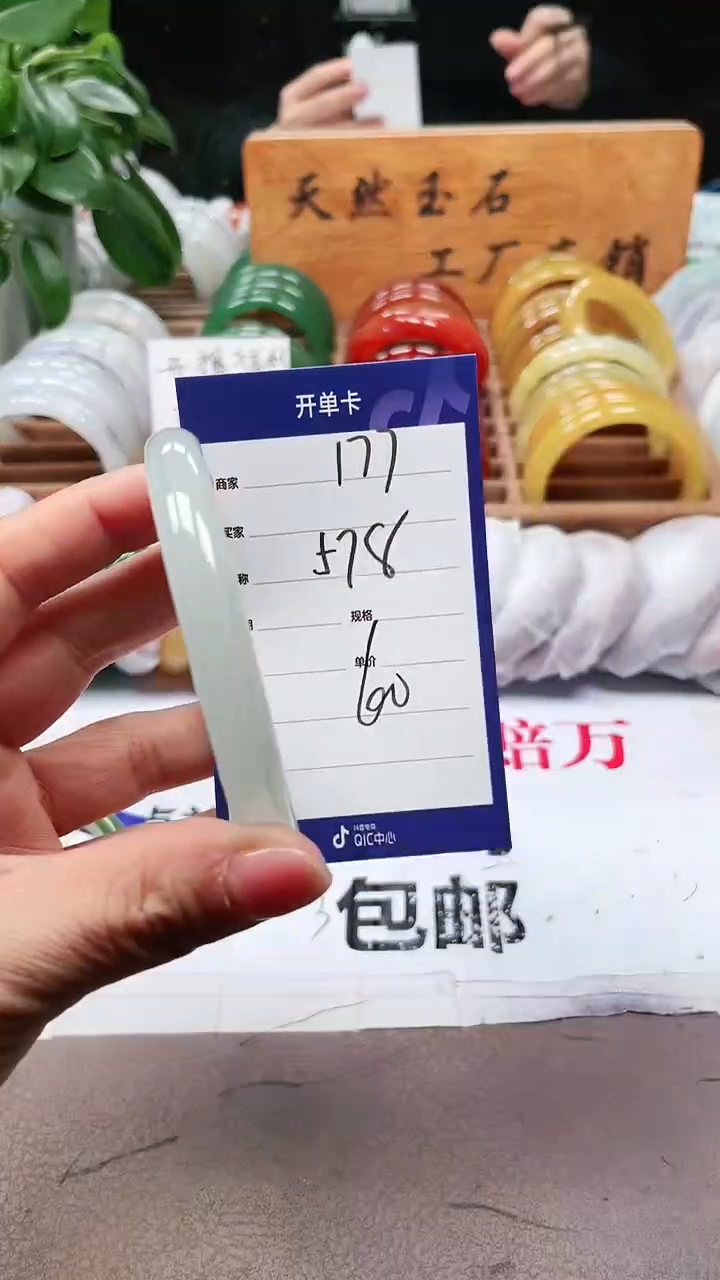 天然玉石
工厂直销
开单卡
商家 177
买家
称 578
规格
单价
60
抖音电商
QIC中心
赔万
包邮